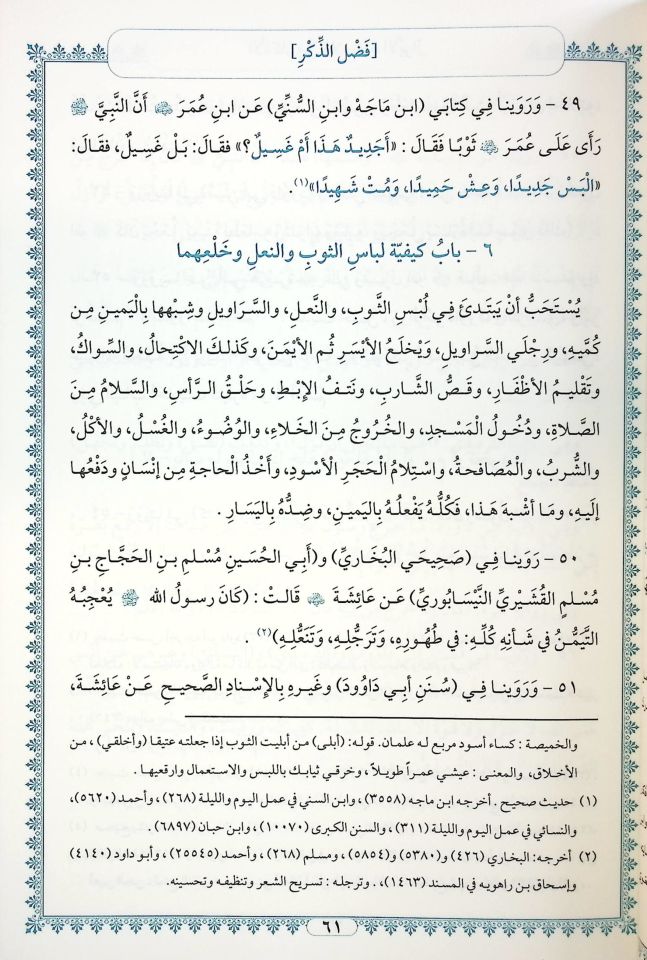 [فَضْل الذِّكْرِ]
٤٩ - وَرَوَينا فِي كِتابَي (ابن مَاجَهْ وابنِ السُّنِّيِّ) عَن ابنِ عُمَرَ ﷺ أَنَّ النَّبِيَّ ﷺ
رَأى عَلَى عُمَرَ ثَوْبًا فَقَالَ: «أَجَدِيدٌ هَذَا أَمْ غَسِيلٌ؟» فقَالَ: بَلْ غَسِيلٌ، فقَالَ:
«الْبَسْ جَدِيدًا، وَعِشْ حَمِيدًا، وَمُتْ شَهِيدًا»(١).
٦ - بابُ كيفيّة لباسِ الثوبِ والنعلِ وخَلْعِهما
يُسْتَحَبُّ أنْ يَبتَدئَ فِي لُبْسِ الثَّوبِ، والنَّعلِ، والسَّراويلِ وشِبْهِها بِالْيَمينِ مِن
كُمَّيهِ، ورِجْلَيِ السَّراويلِ، وَيْخلَعُ الأيْسَرِ ثُم الأيْمَنَ، وَكَذلكَ الاكْتِحالُ، والسِّواكُ،
وتَقْليمُ الأظْفارِ، وقَصُّ الشَّارِبِ، ونَتفُ الإبْطِ، وحَلْقُ الرَّأسِ، والسَّلامُ مِنَ
الصَّلاةِ، ودُخُولُ الْمَسْجدِ، والخُرُوجُ مِنَ الخَلاءِ، والوُضُوءُ، والغُسْلُ، والأكْلُ،
والشُّربُ، والْمُصَافحةُ، واسْتِلامُ الْحَجَرِ الأسْودِ، وأخْذُ الْحاجةِ مِن إنْسَانٍ ودَفْعُها
إلَيهِ، ومَا أشْبهَ هَذا، فَكُلُّهُ يَفْعلُهُ بِالْيَمينِ، وضِدُّهُ بِالْيَسَارِ.
٥٠ - رَوَينا فِي (صَحِيحَي البُخَاريِّ) و(أبِي الحُسَينِ مُسْلمِ بنِ الحَجَّاجِ بنِ
مُسْلمٍ القُشَيْرِيِّ النَّيْسَابُوريِّ) عَن عَائِشَةَ قَالتْ: (كَانَ رسولُ الله ﷺ يُعْجِبُهُ
التَّيَمُّنُ فِي شَأنِهِ كُلِّهِ: في طُهُورِهِ، وتَرَجُّلِهِ، وتَنَعُّلِهِ)(٢).
٥١ - وَرَوَينا فِي (سُنَنِ أبِي دَاوُودَ) وغَيرِهِ بِالإسْنادِ الصَّحيحِ عَنْ عائِشَةَ،
والخميصة: كساء أسود مربع له علمان. قوله: (أبلى) من أبليت الثوب إذا جعلته عتيقا (وأخلقي)، من
الأخلاق، والمعنى: عيشي عمراً طويلاً، وخرقي ثيابك باللبس والاستعمال وارقعيها.
(١) حديث صحيح. أخرجه ابن ماجه (٣٥٥٨)، وابن السني في عمل اليوم والليلة (٢٦٨)، وأحمد (٥٦٢٠)،
والنسائي في عمل اليوم والليلة (٣١١)، والسنن الكبرى (١٠٠٧٠)، وابن حبان (٦٨٩٧).
(٢) أخرجه: البخاري (٤٢٦) و(٥٣٨٠) و(٥٨٥٤)، ومسلم (٢٦٨)، وأحمد (٢٥٥٤٥)، وأبو داود (٤١٤٠)
وإسحاق بن راهويه في المسند (١٤٦٣)،. وترجله: تسريح الشعر وتنظيفه وتحسينه.
٦١